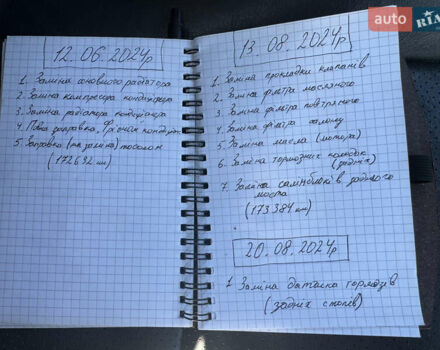 12.06.2024р
1. Заміна основного радіатора
2. Заміна компресора кондиціонера
3. Заміна радіатора кондиціонера
4. Повна заправка, фреоном кондиціон
5. Заправка (та заміна) тосолом
(172632 км)
13.08.2024р
1. Заміна прокладки клапанів
2. Заміна фільтра масляного
3. Заміна фільтра повітряного
4. Заміна фільтра салону
5. Заміна масла (мотора)
6. Заміна тормозних колодок
(задніх)
7. Заміна сайлінблоків заднього
моста
(173384 км)
20.08.2024р
1 Заміна датчика тормозів
(задніх стопів)
auto
RIA